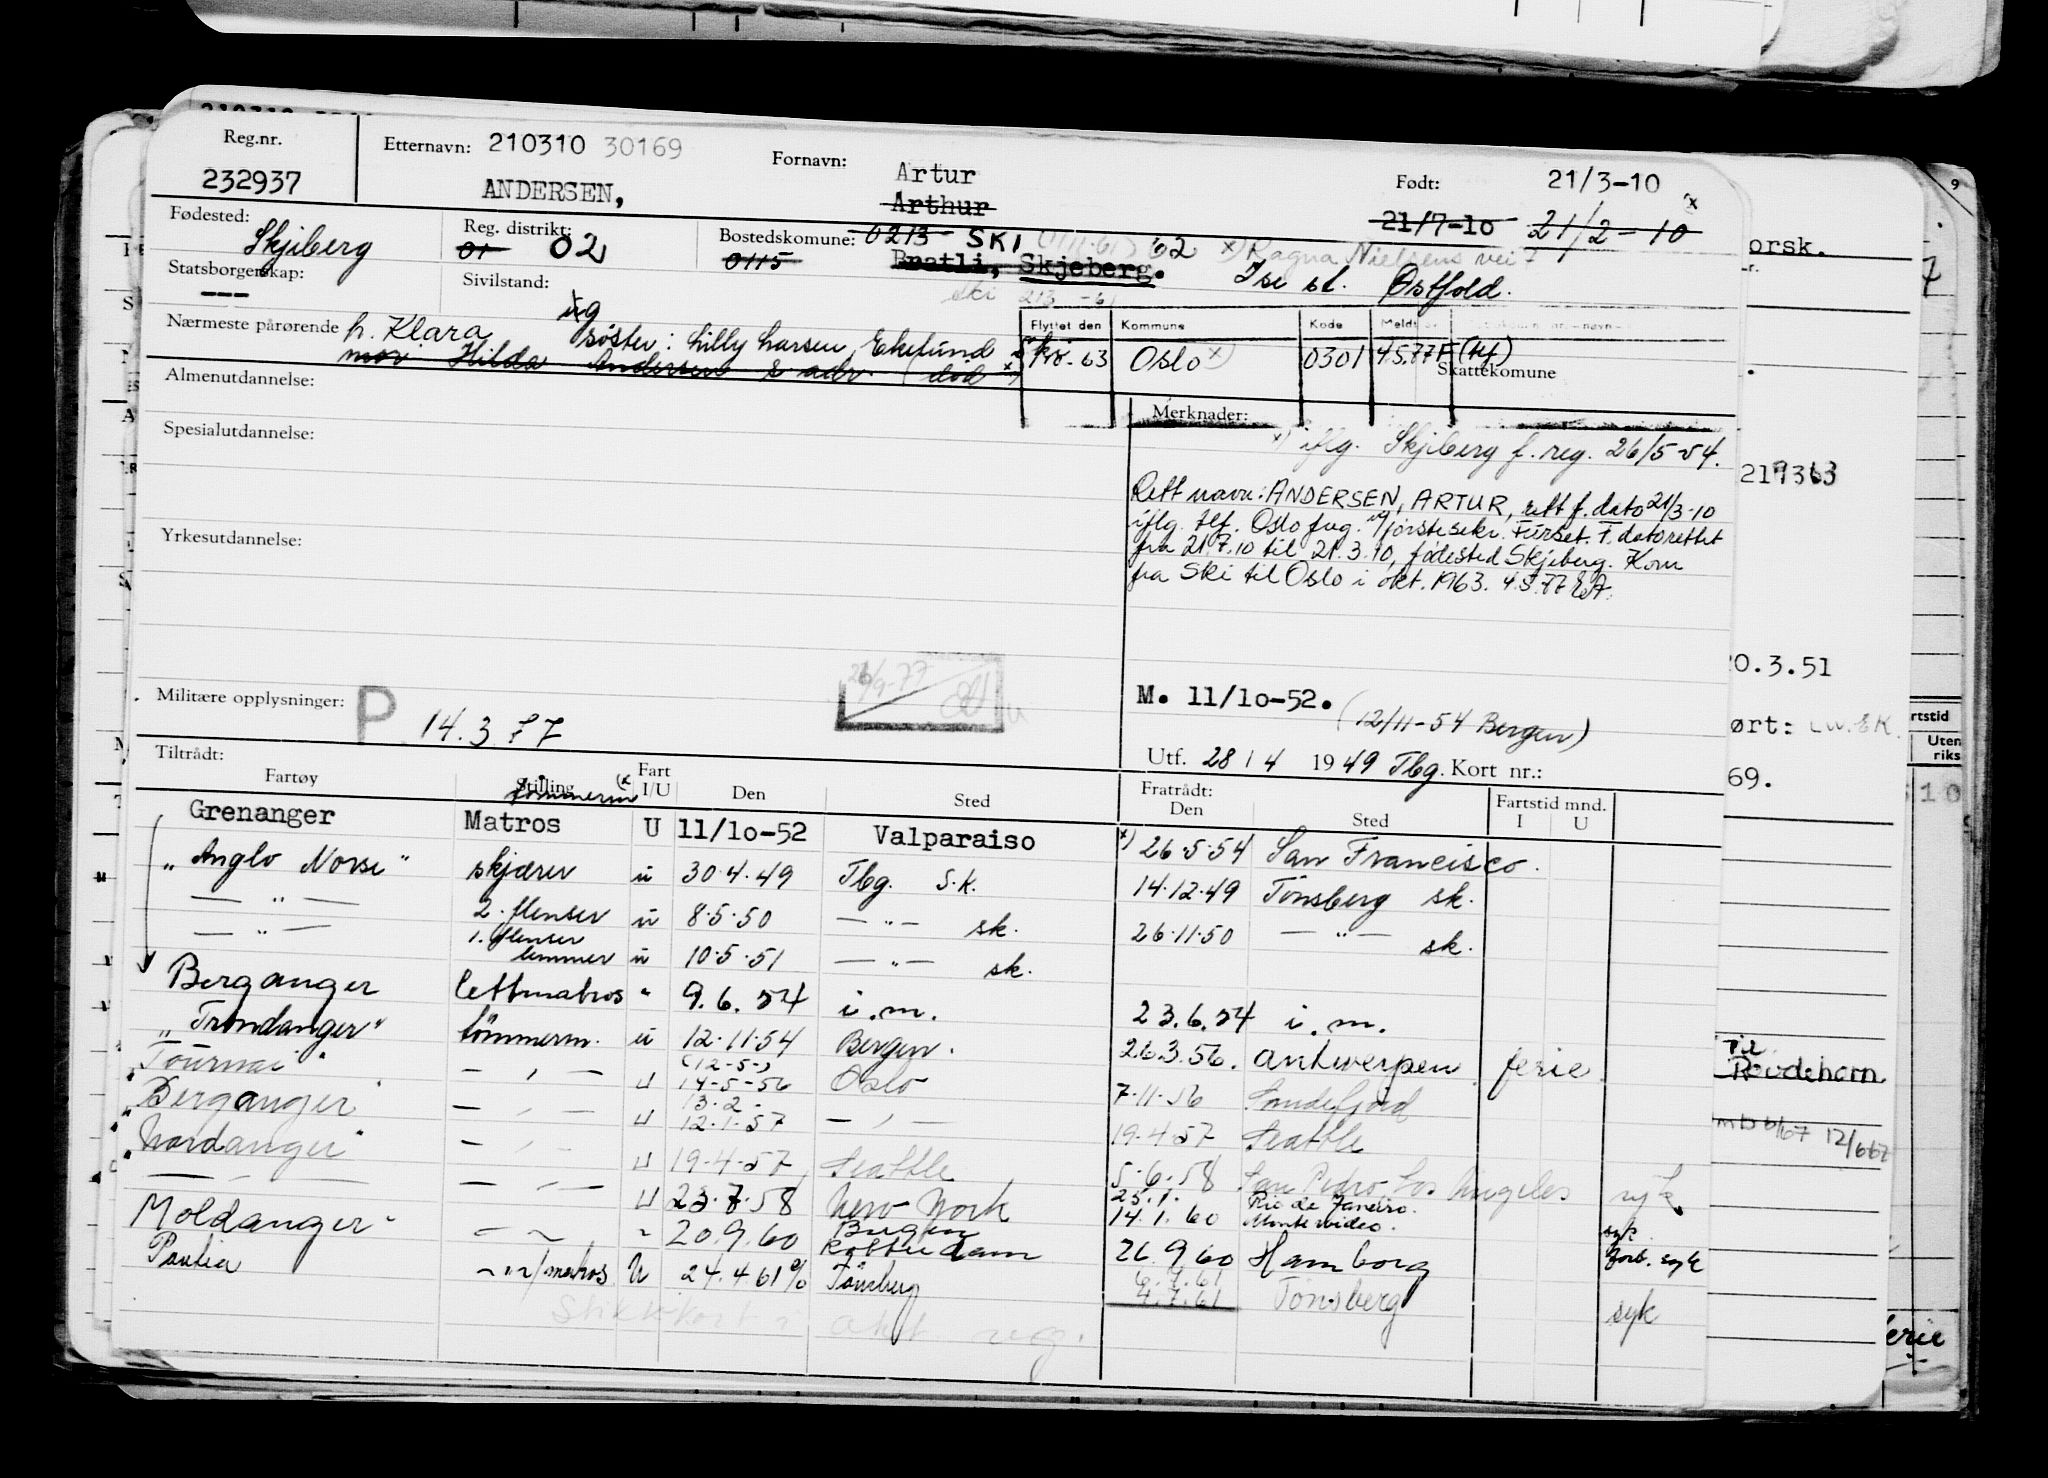 Reg.nr. Etternavn: 210310 30169 Fornavn: Artur Født: 21/3-10
232937 ANDERSEN, Arthur 21/7-10 21/2-10 x
Fødested: Skjeberg Reg. distrikt: 01 02 Bostedskomune: 0213 SKI 62 x) Ragna Nielsens vei 7
0115 Bratli, Skjeberg. Ise st. Østfold.
Statsborgerskap: --- Sivilstand: ug
ski 213 -61
Nærmeste pårørende h. Klara søster: Lilly Larsen, Ekelund
mor Hilda Andersen s adr. (død)
Flyttet den Kommune Kode Meldt
63 Oslo x) 0301 4.5.77 F (tlf)
Skattekomune
Almenutdannelse:
Merknader:
Spesialutdannelse:
x) iflg. Skjeberg f. reg. 26/5-54.
Rett navn: ANDERSEN, ARTUR, rett f. dato 21/3-10
iflg. tlf. Oslo fvg. v/førstesekr. Furset. F. dato rettet
fra 21.7.10 til 21.3.10, fødested Skjeberg. Kom
fra Ski til Oslo i okt. 1963. 4.5.77 EA.
Yrkesutdannelse:
26/9-77
Militære opplysninger: P 14.3.77
M. 11/10-52.
(12/11-54 Bergen)
Utf. 28/4 1949 Tbg. Kort nr.:
Tiltrådt: Fratrådt:
Fartøy Stilling Fart I/U Den Sted Den Sted Fartstid mnd. I U
tømmerm (x
Grenanger Matros U 11/10-52 Valparaiso x) 26.5.54 San Francisco.
"Anglo Norse" skjærer u 30.4.49 Tbg. s.k. 14.12.49 Tönsberg sk.
— " — 2. flenser u 8.5.50 — " — sk. 26.11.50 — " — sk.
— " — 1. flenser
lemmer u 10.5.51 — " — sk.
Berganger lettmatros " 9.6.54 i.m. 23.6.54 i.m.
"Trondanger" tömmerm. u 12.11.54 Bergen. 26.3.56. Antwerpen ferie
"Tournai" — " — U (12-5-) 14-5-56 Oslo 7-11-56 Sandefjord
"Berganger" — " — U 13.2- 12.1-57 — " — 19.4.57 Seattle
"Nordanger" — " — U 19.4.57 Seattle 5.6.58 San Pedro, Los Angeles syk
— " — — " — U 23.7.58 New York 25.1. Rio de Janeiro.
14.1.60 Montevideo. syk
Moldanger — " — " 20.9.60 Bergen
Rotterdam 26.9.60 Hamborg forb. syk
Paulia — " —/matros U 24.4.61 % Tönsberg 6.7.61
4.7.61 Tönsberg syk
Stikkkort i
orsk.
219363
20.3.51
ørt:
69.
Til
Rondehorn
12/667
rtstid
Uten
riks
510
ferie